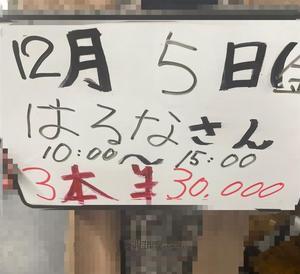 12月 5日(金
はるなさん
10:00〜15:00
3本半 30.000